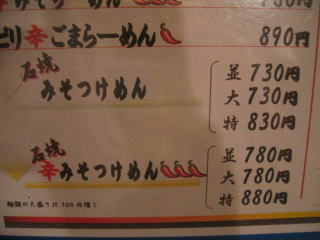 730円
ピリ辛ごまらーめん 890円
石焼
みそつけめん
並 730円
大 730円
特 830円
石焼
辛みそつけめん
並 780円
大 780円
特 880円
麺類の大盛りは100円増し